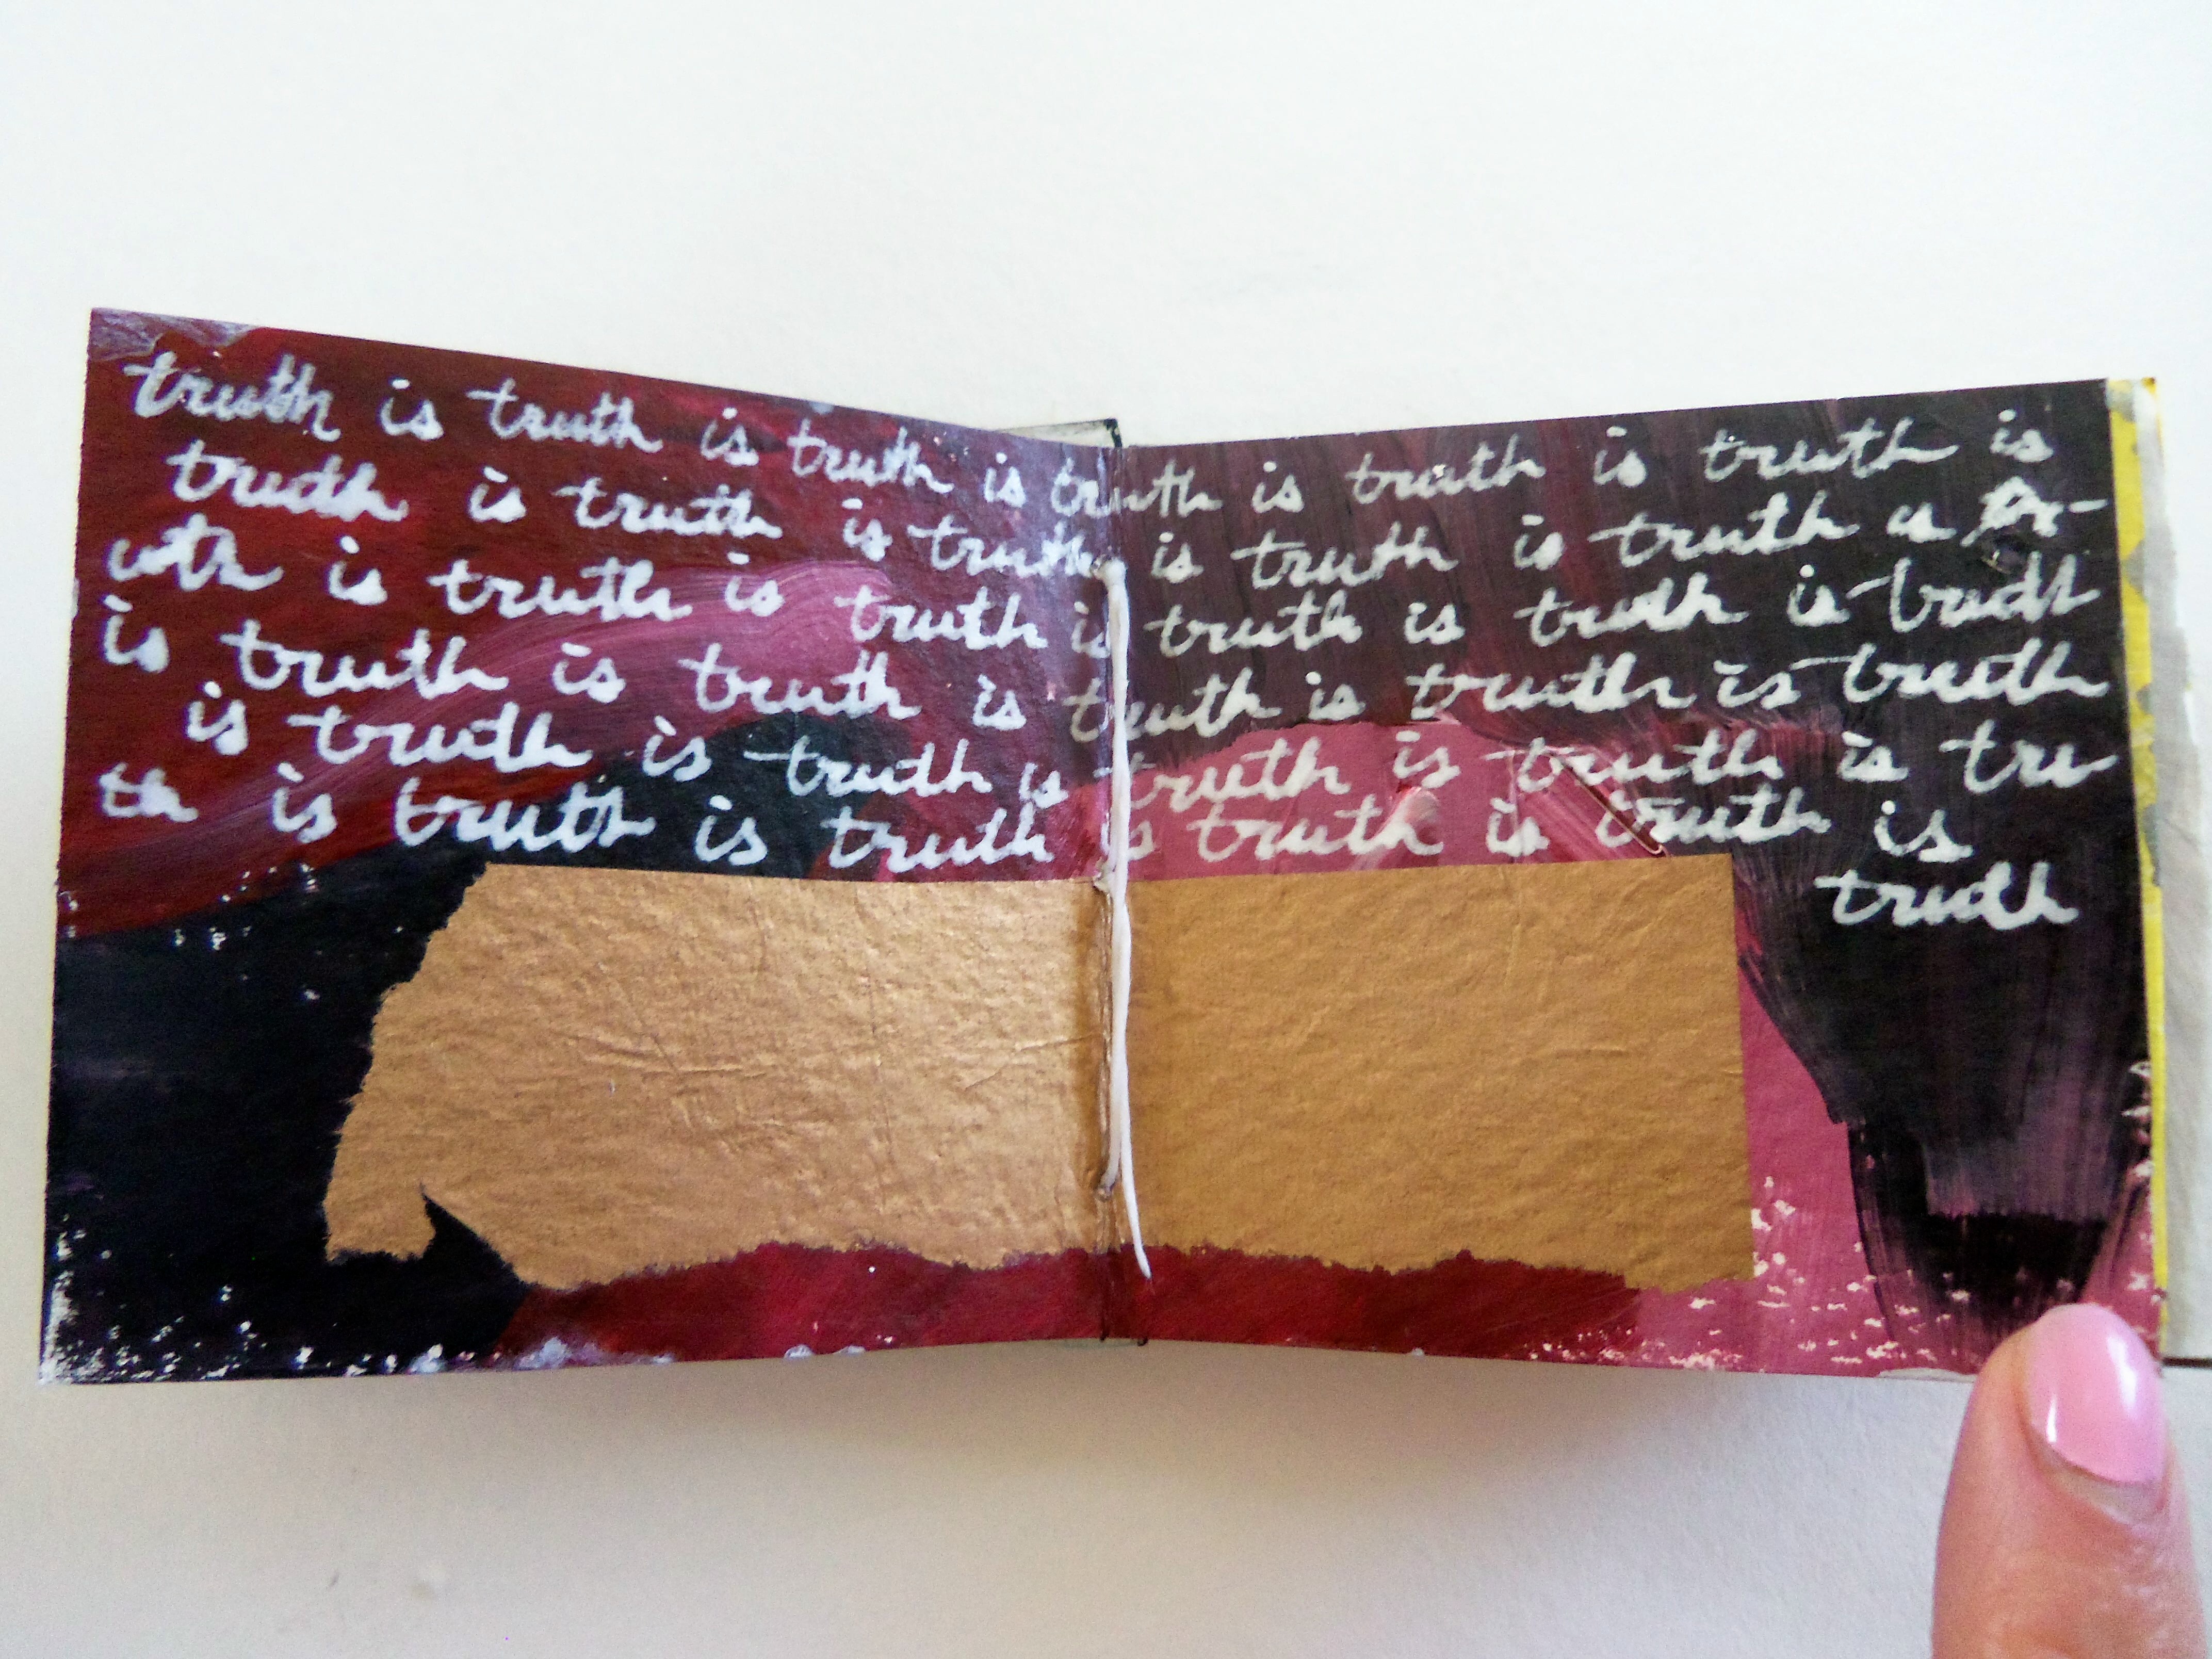 truth is truth is truth is truth is truth is truth is
truth is truth is truth is truth is truth is tr-
uth is truth is truth is truth is truth is truth
is truth is truth is truth is truth is truth
is truth is truth is truth is truth is tru
th is truth is truth is truth is truth is
truth